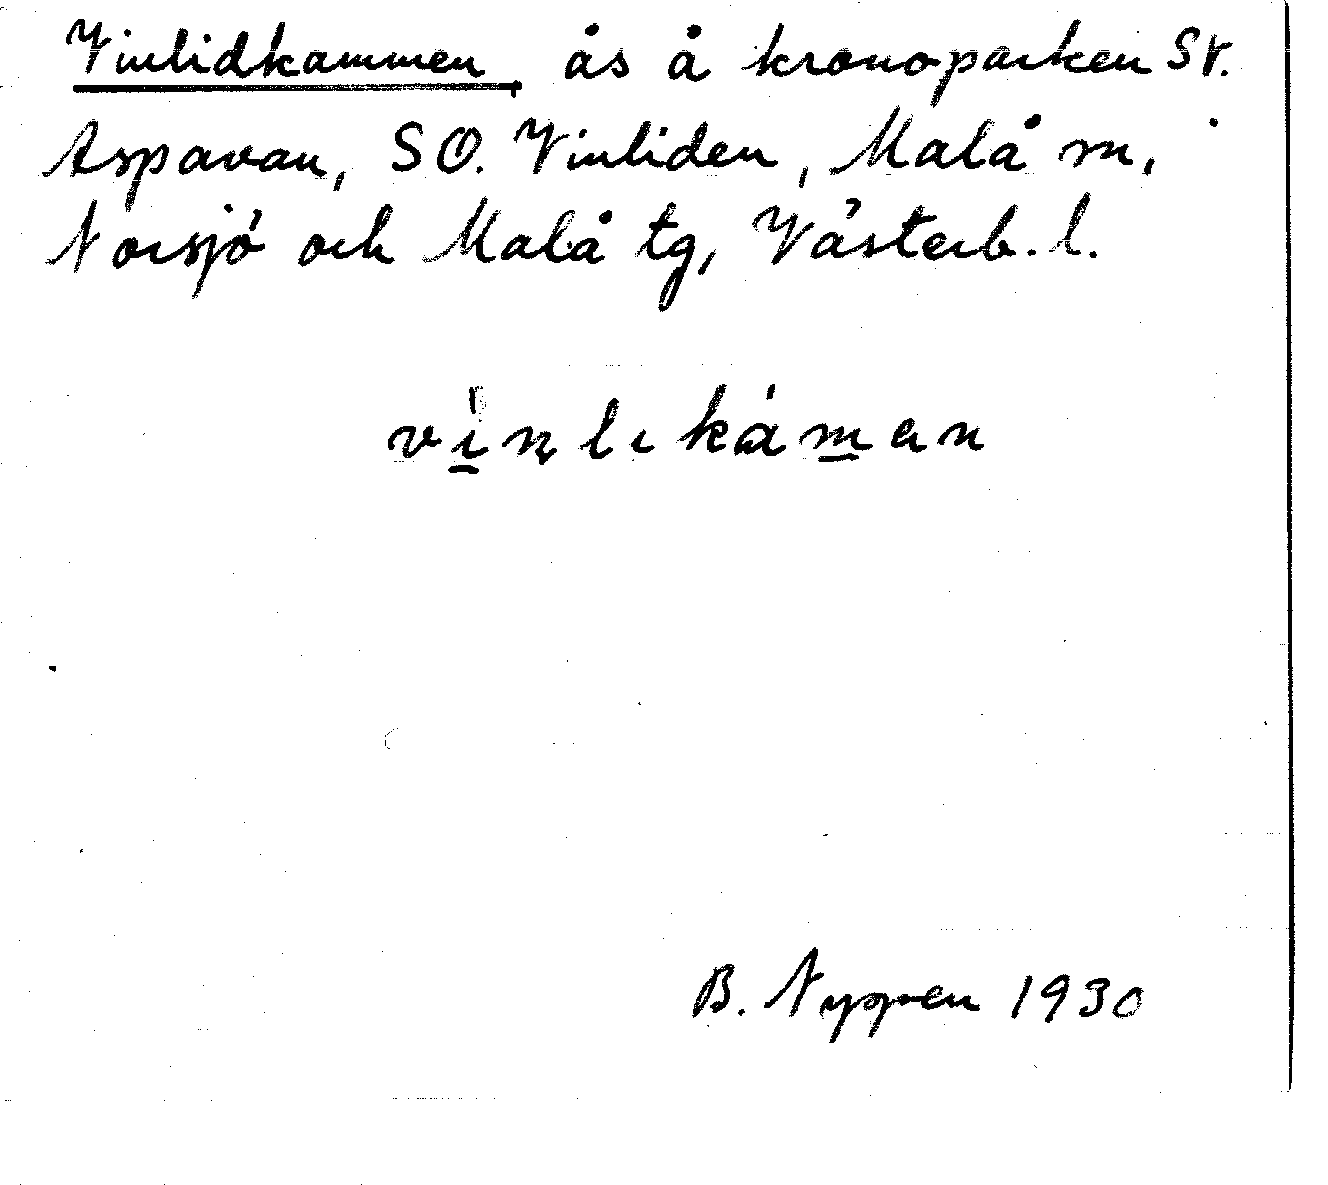 Vinlidkammen, ås å kronoparken St.
Aspavan, SO. Vinliden, Malå sn,
Norsjö och Malå tg, Västerb. l.
ví̲ṇlɩkȧm̲an
B. Nygren 1930